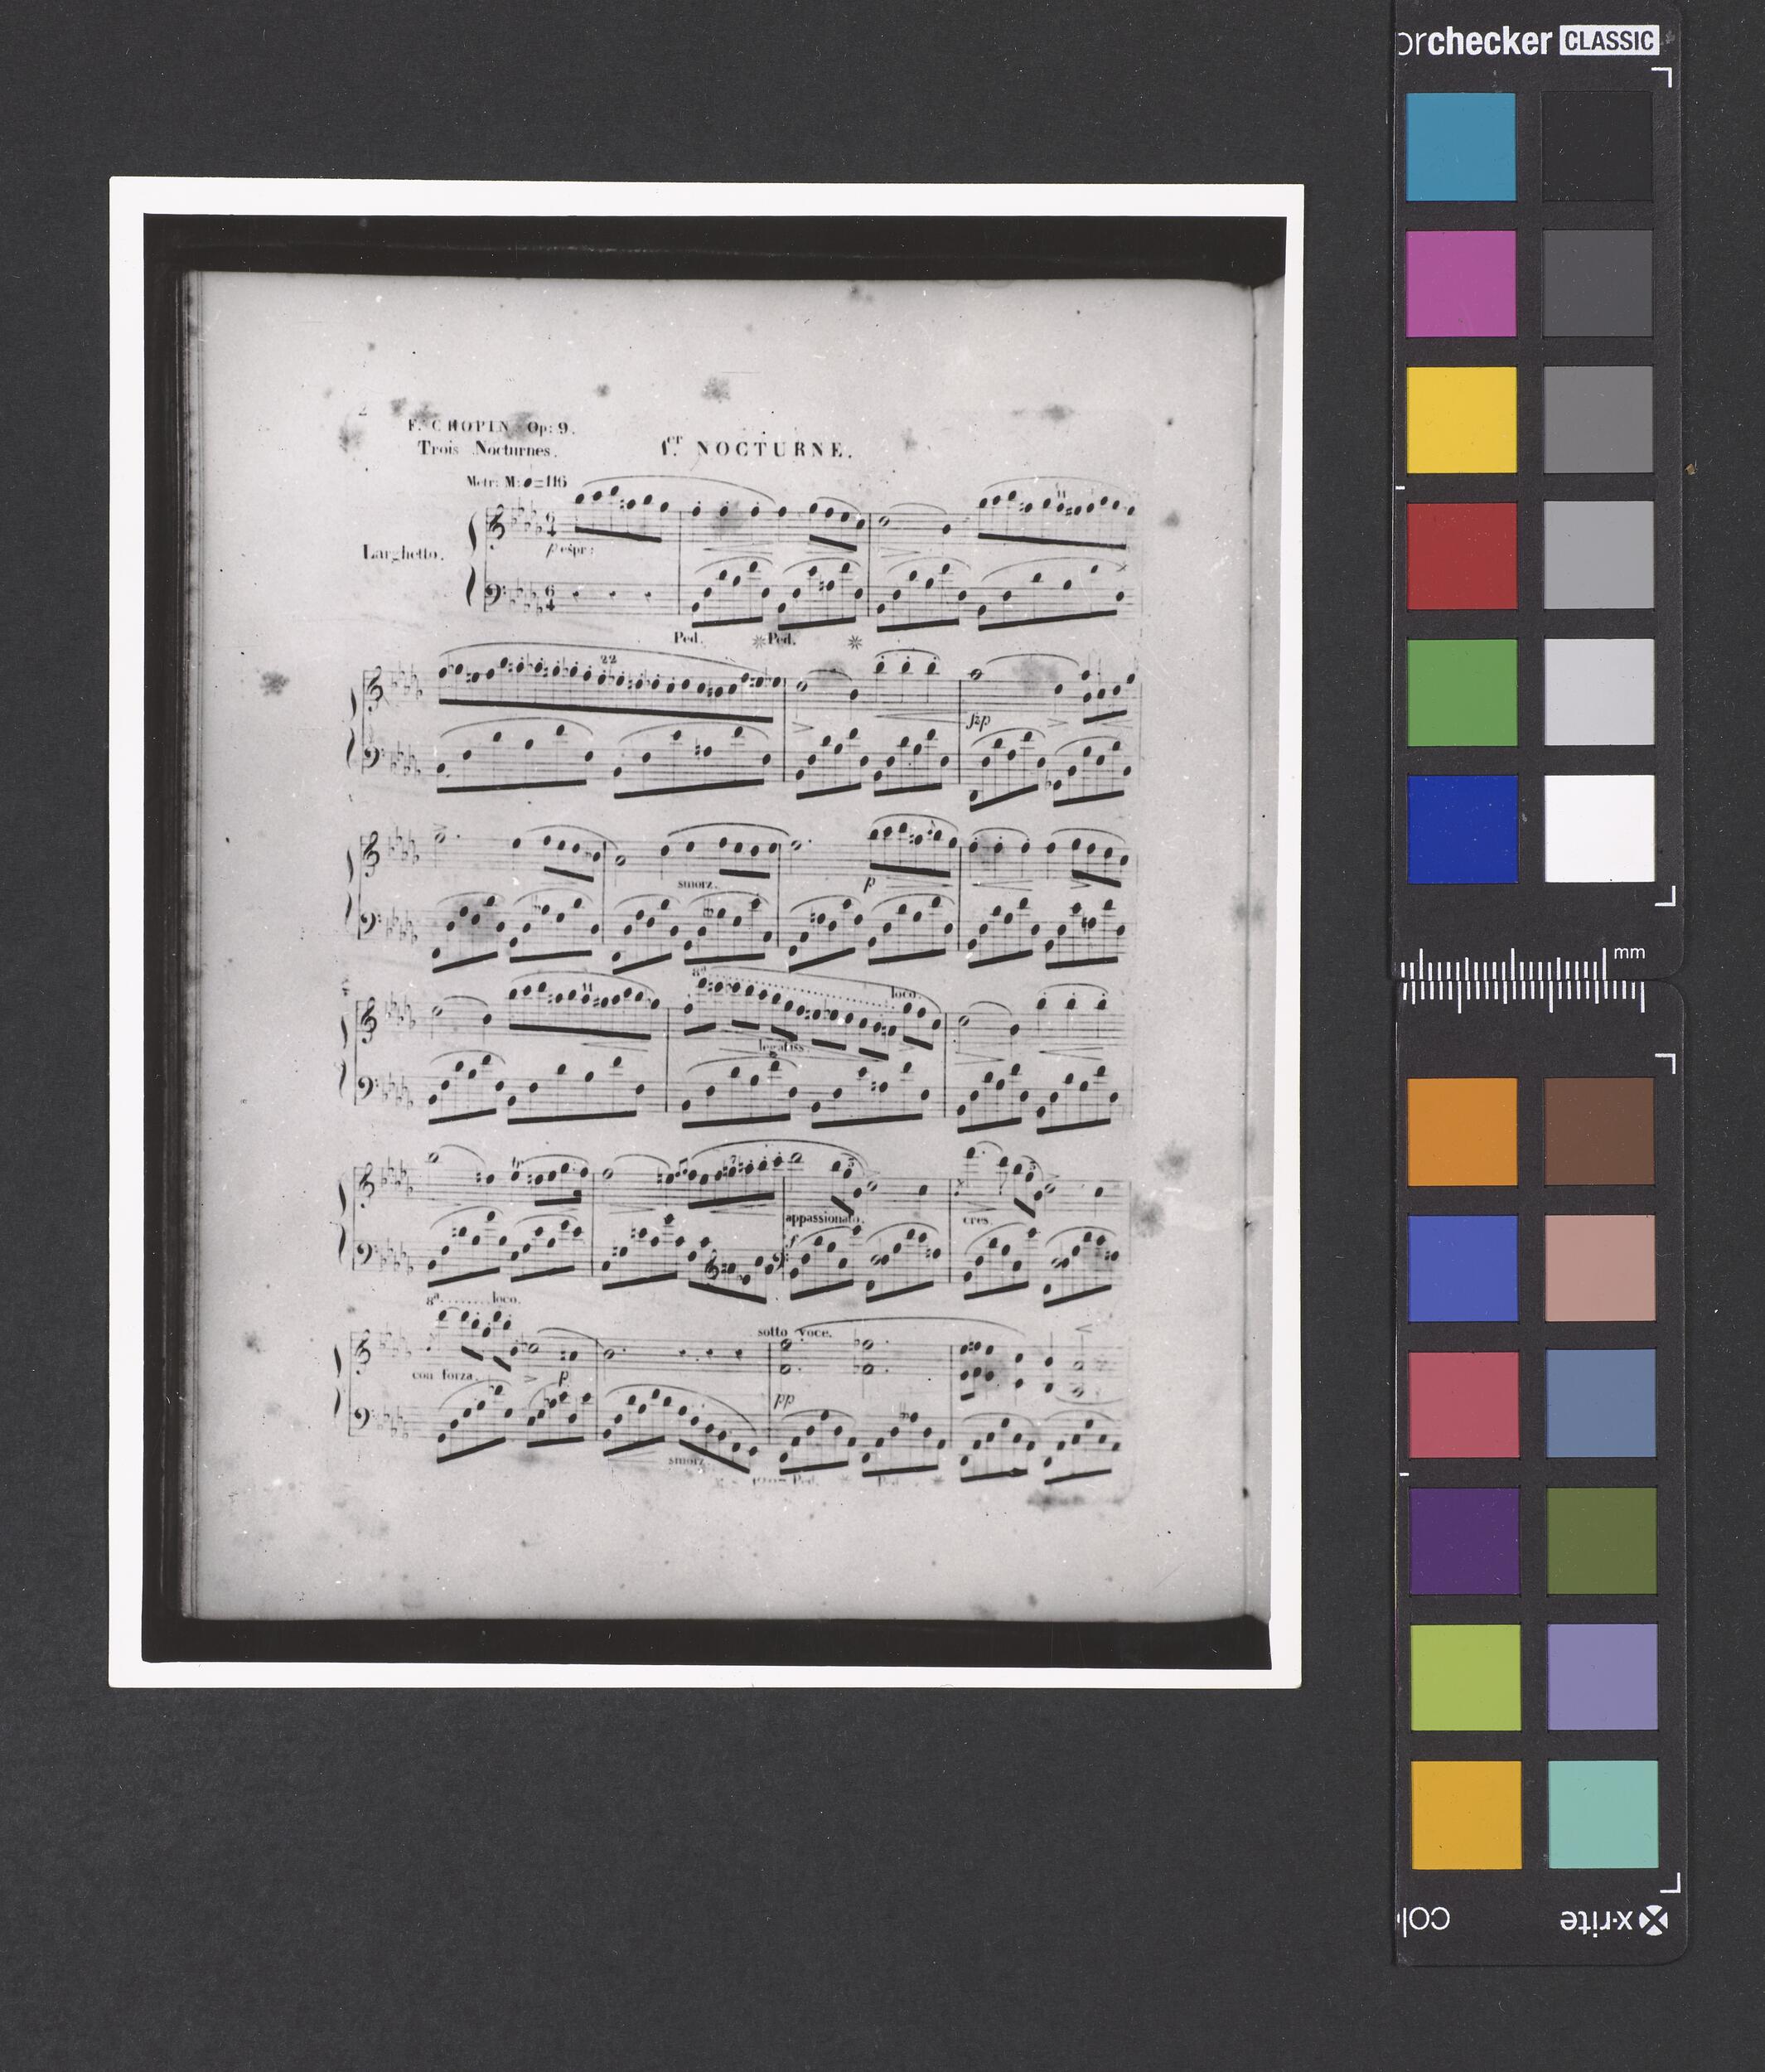 orchecker CLASSIC
2
F. CHOPIN Op: 9.
Trois Nocturnes.
1er NOCTURNE.
Metr: M: =116
Larghetto.
p espr:
6
4
6
4
11
Ped. Ped.
22
fzp
smorz.
p
11
8a loco.
legatiss.
appassionato.
f
cres.
8a loco.
con forza.
p
sotto voce.
pp
smorz.
Ped. Ped.
mm
x·rite
colo